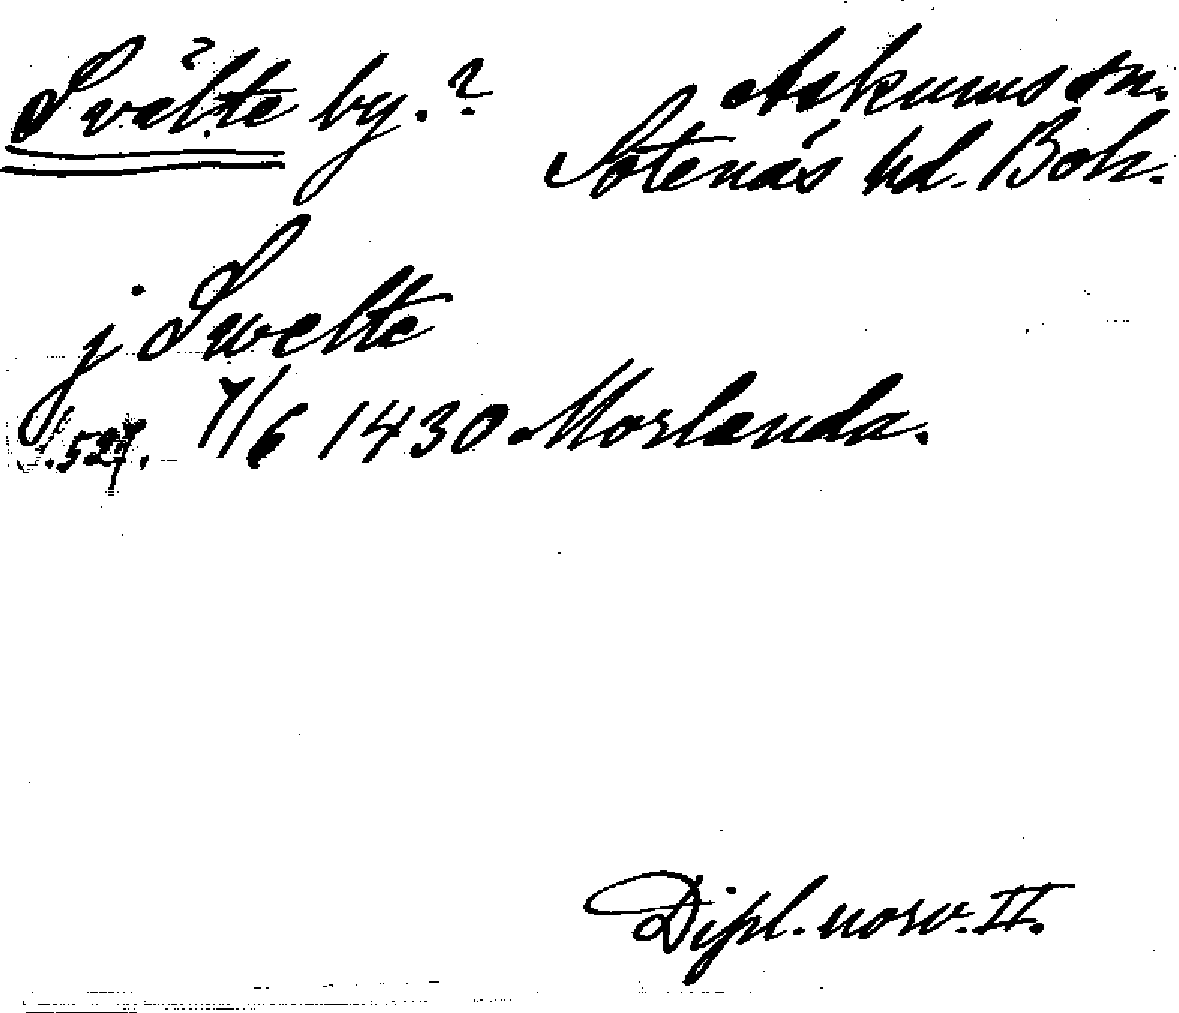 Svälte by.? Askums sn.
Sotenäs hd. Boh.
j Swelte
S.527. 7/6 1430 Morlanda.
Dipl. norv. II.